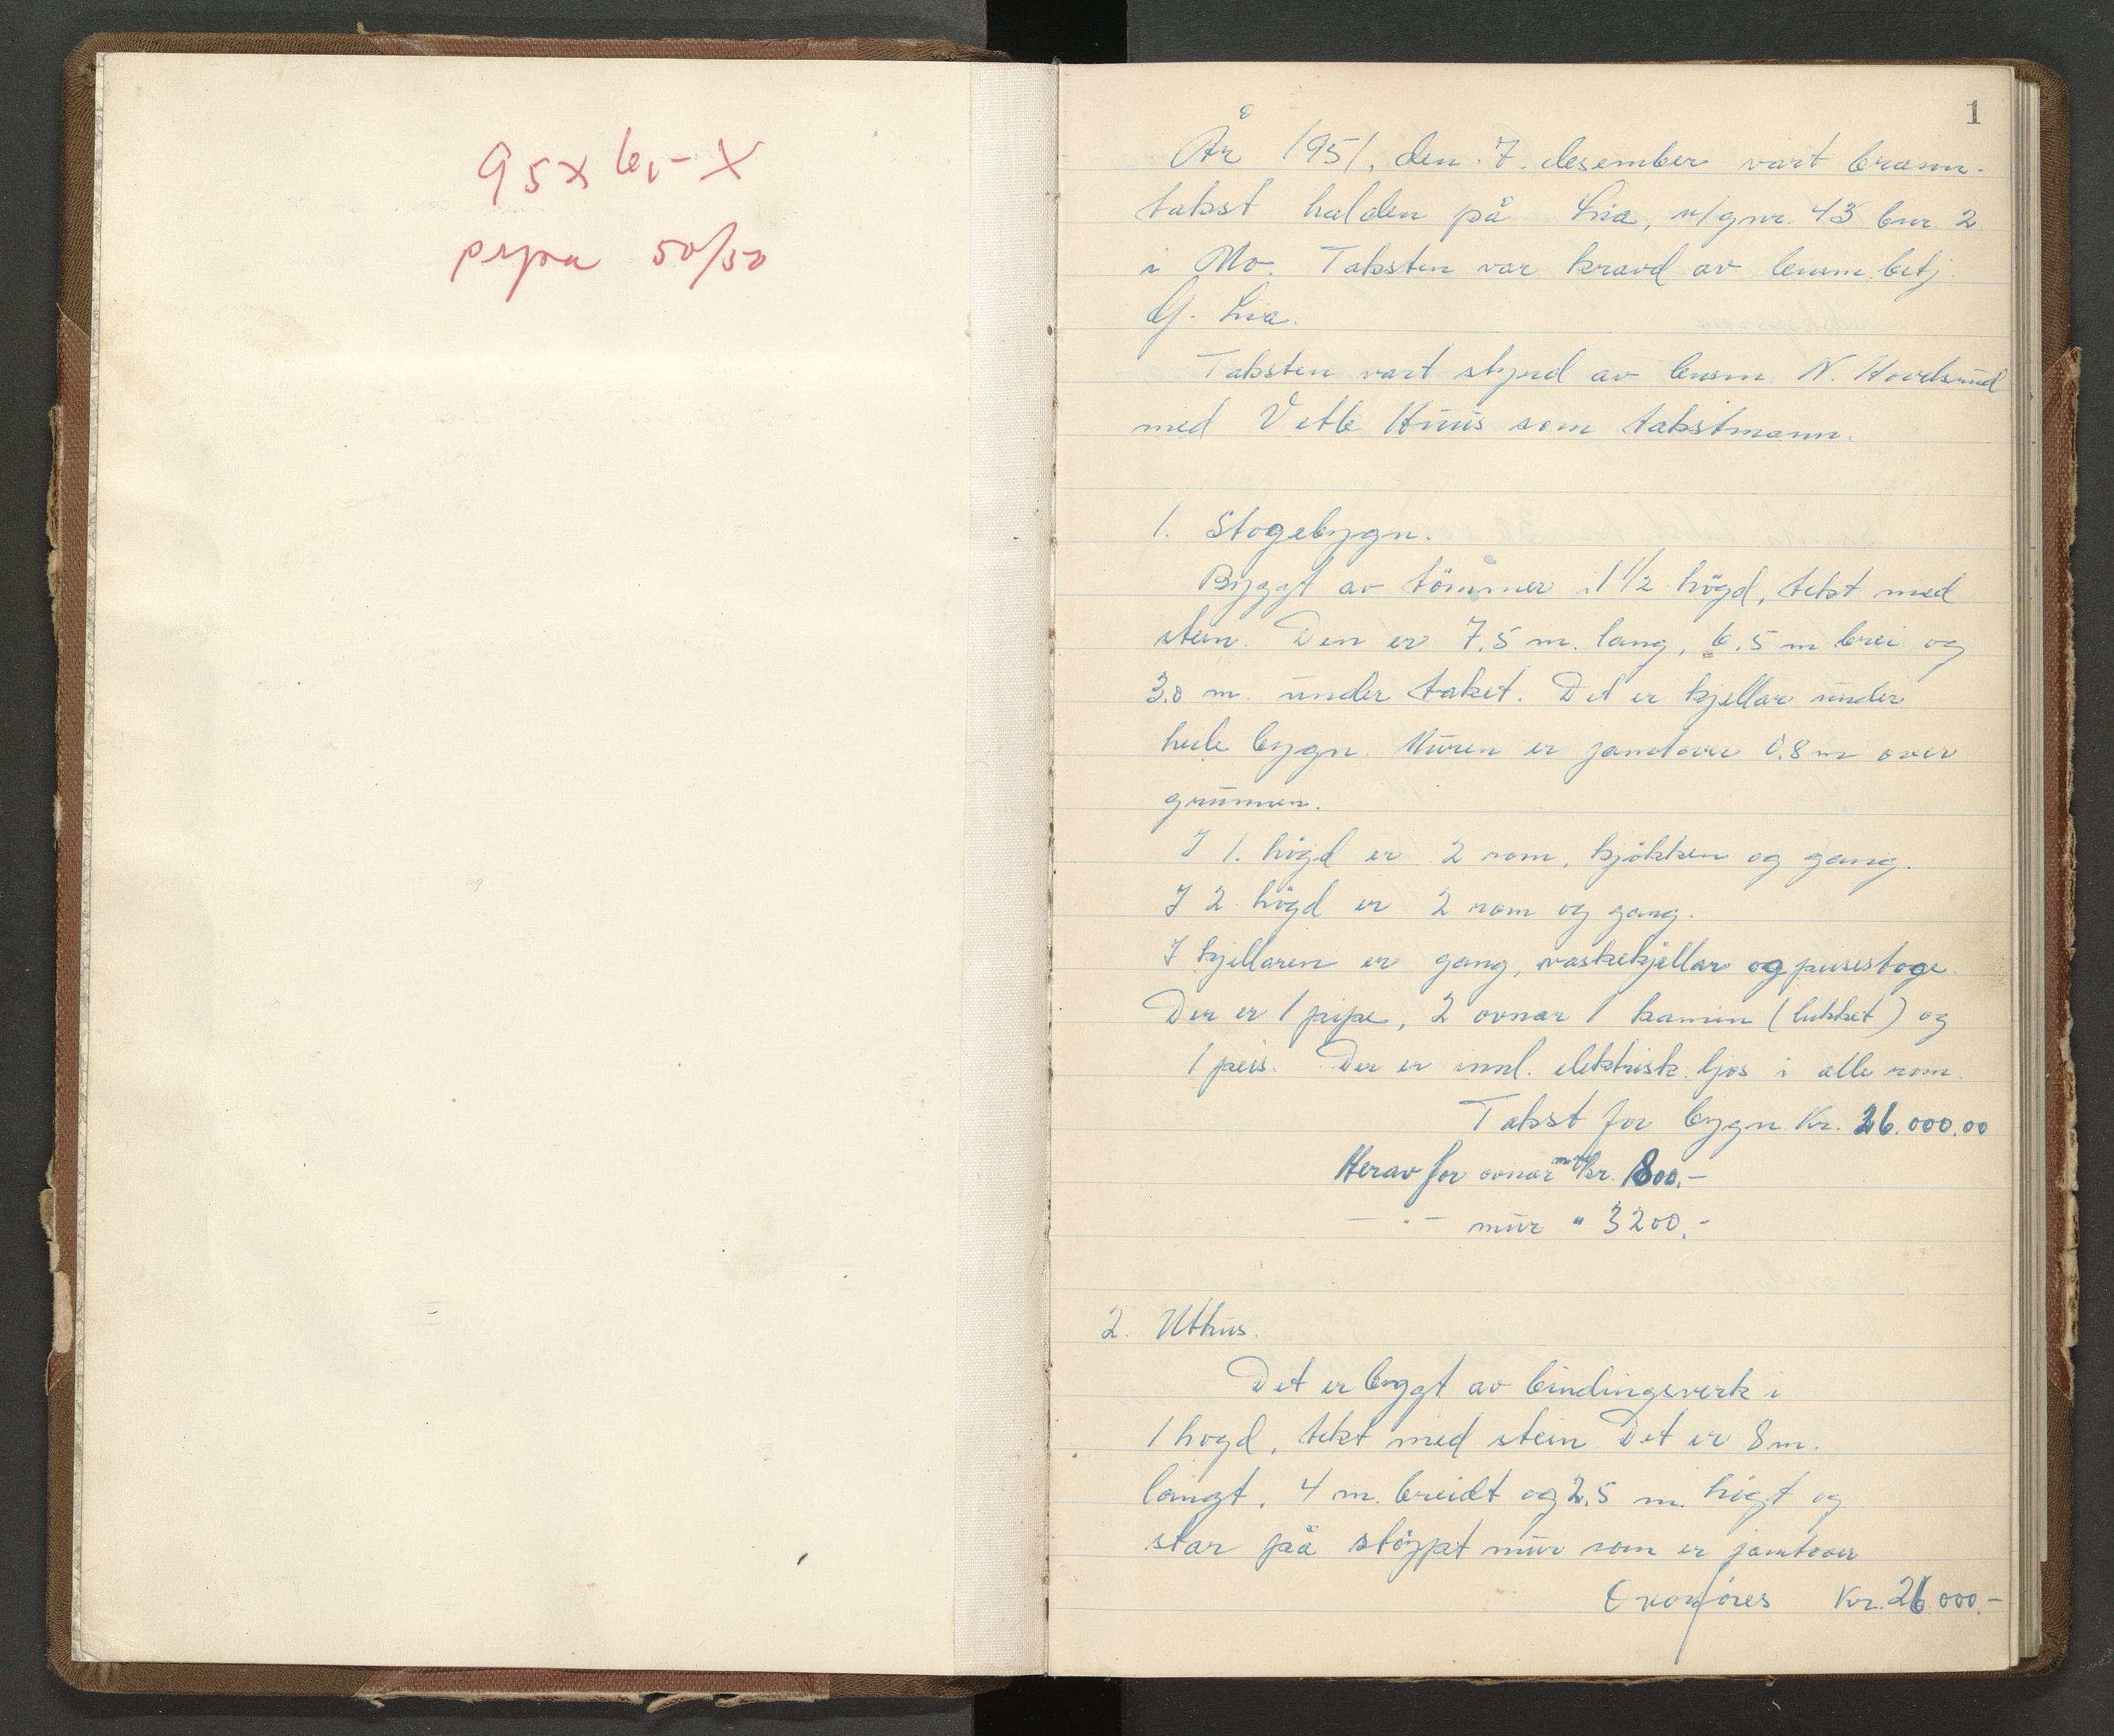 95 x
50/50
1
År 1951, den 7. desember vart brann-
takst halden på Lia, u/gnr. 43 bnr. 2
i Mo. Taksten var kravd av lensm.betj.
G. Lia.
Taksten vart styrd av lensm. N. Hovdsund
med Vetle Huus som takstmann.
1. Stogebygn.
Byggt av tömmer i 1 1/2 högd, tekt med
stein. Den er 7.5 m. lang, 6.5 m brei og
3.0 m under taket. Det er kjellar under
heile bygn. Muren er jamtover 0.8 m over
grunnen.
I 1. högd er 2 rom, kjökken og gang.
I 2 högd er 2 rom og gang.
I kjellaren er gang, vaskekjellar og peisestoge.
Der er 1 pipe, 2 ovnar 1 kamin (lukket) og
1 peis. Der er innl. elektrisk ljos i alle rom.
Takst for bygn. Kr. 26.000.00
Herav for ovnar m.v. kr. 800.-
— " — mur " 3200.-
2. Uthus.
Det er byggt av bindingsverk i
1 hogd, tekt med stein Det er 8 m.
langt, 4 m. breidt og 2,5 m. högt og
star på stöypt mur som er jamtover
Overföres Kr. 26000.-